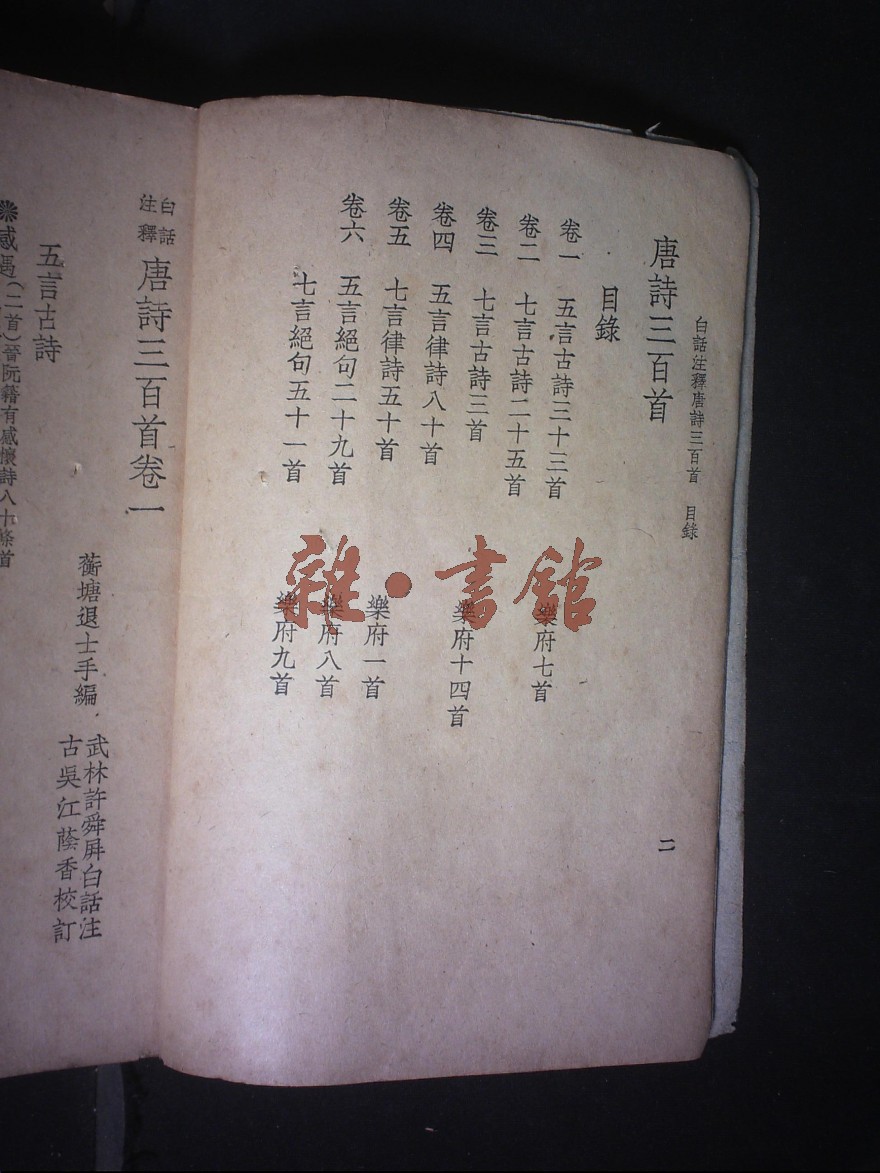 白話注釋唐詩三百首 目錄
唐詩三百首
目錄
卷一 五言古詩三十三首 樂府七首
卷二 七言古詩二十五首
卷三 七言古詩三首 樂府十四首
卷四 五言律詩八十首
卷五 七言律詩五十首 樂府一首
卷六 五言絕句二十九首 樂府八首
七言絕句五十一首 樂府九首
二
雜·書館
白話注釋 唐詩三百首卷一
蘅塘退士手編
武林許舜屏白話注
古吳江蔭香校訂
五言古詩
感遇(二首)晉阮籍有感懷詩八十首